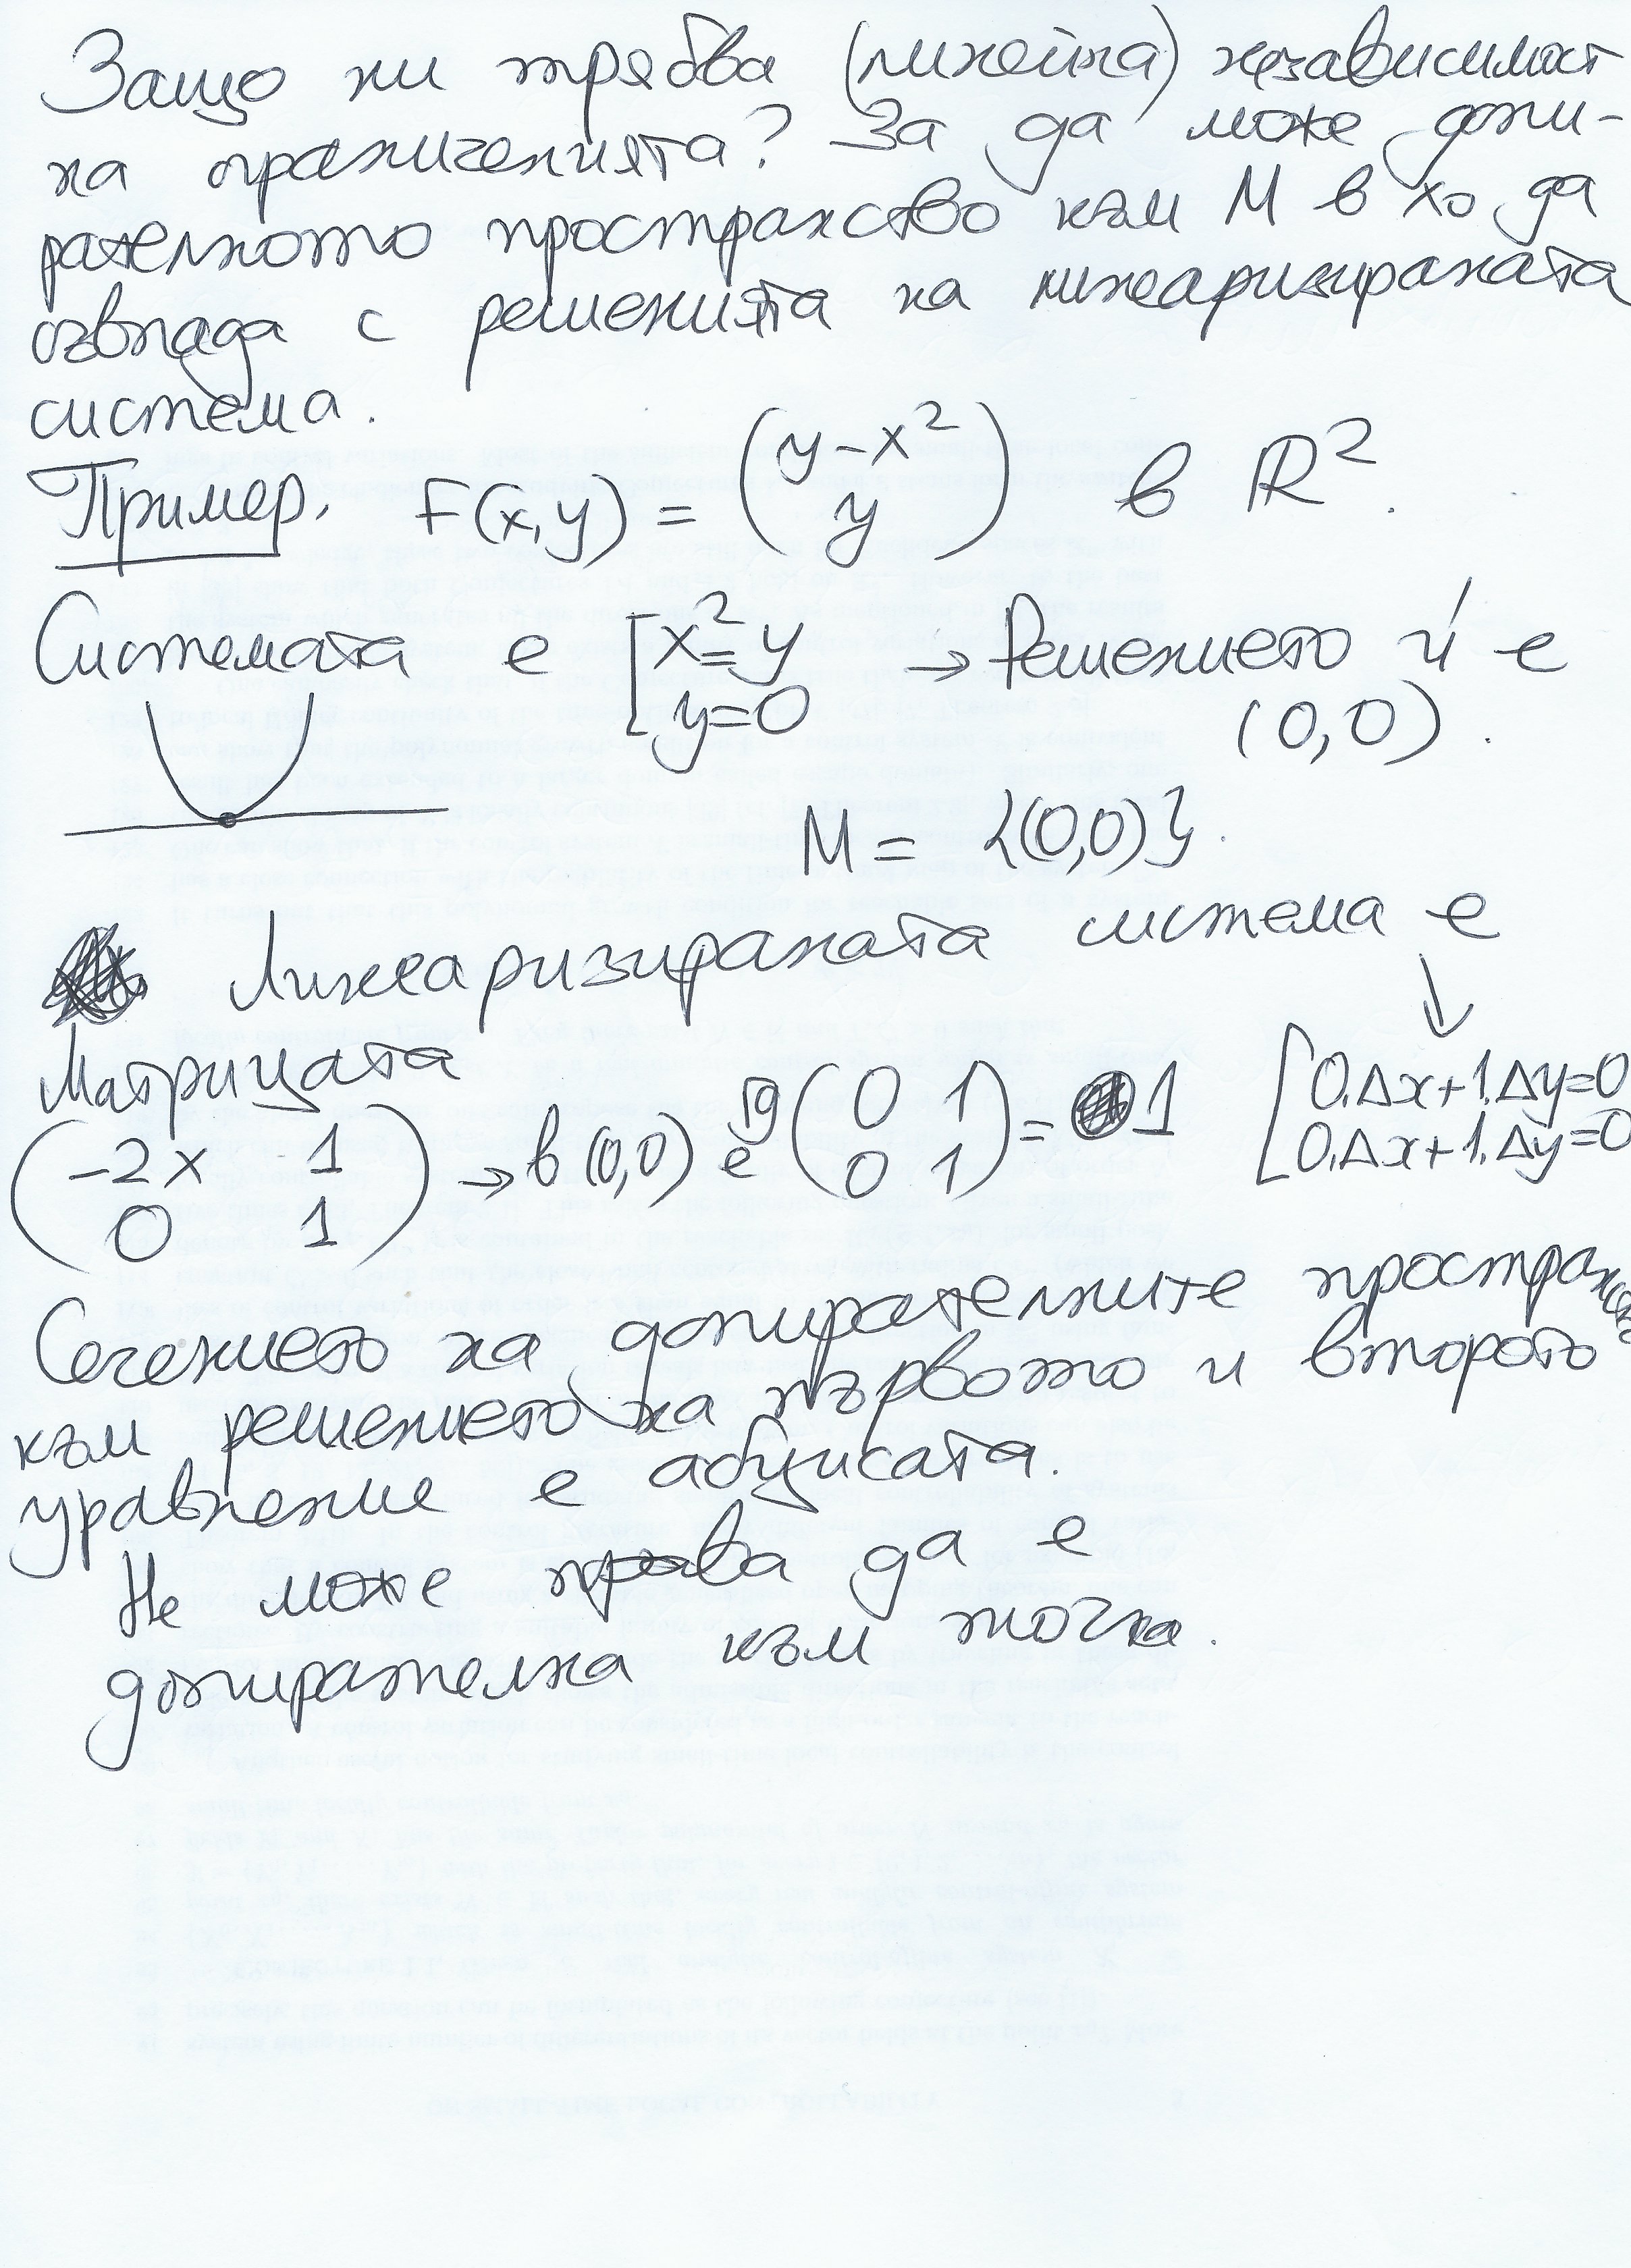 Защо ни трябва (линейна) независимост
на ограниченията? За да може допи-
рателното пространство към M в x₀ да
съвпада с решенията на линеаризираната
система.
Пример. F(x,y) = (y-x² y) в ℝ².
Системата е [x²=y y=0 → Решението ѝ е
(0,0).
M = {(0,0)}.
Линеаризираната система е
↓
Матрицата
(-2x 1 0 1) → в (0,0) е rg(0 1 0 1) = 1
[0.Δx+1.Δy=0
0.Δx+1.Δy=0
Сечението на допирателните пространства
към решението на първото и второто
уравнение е абцисата.
Не може права да е
допирателна към точка.